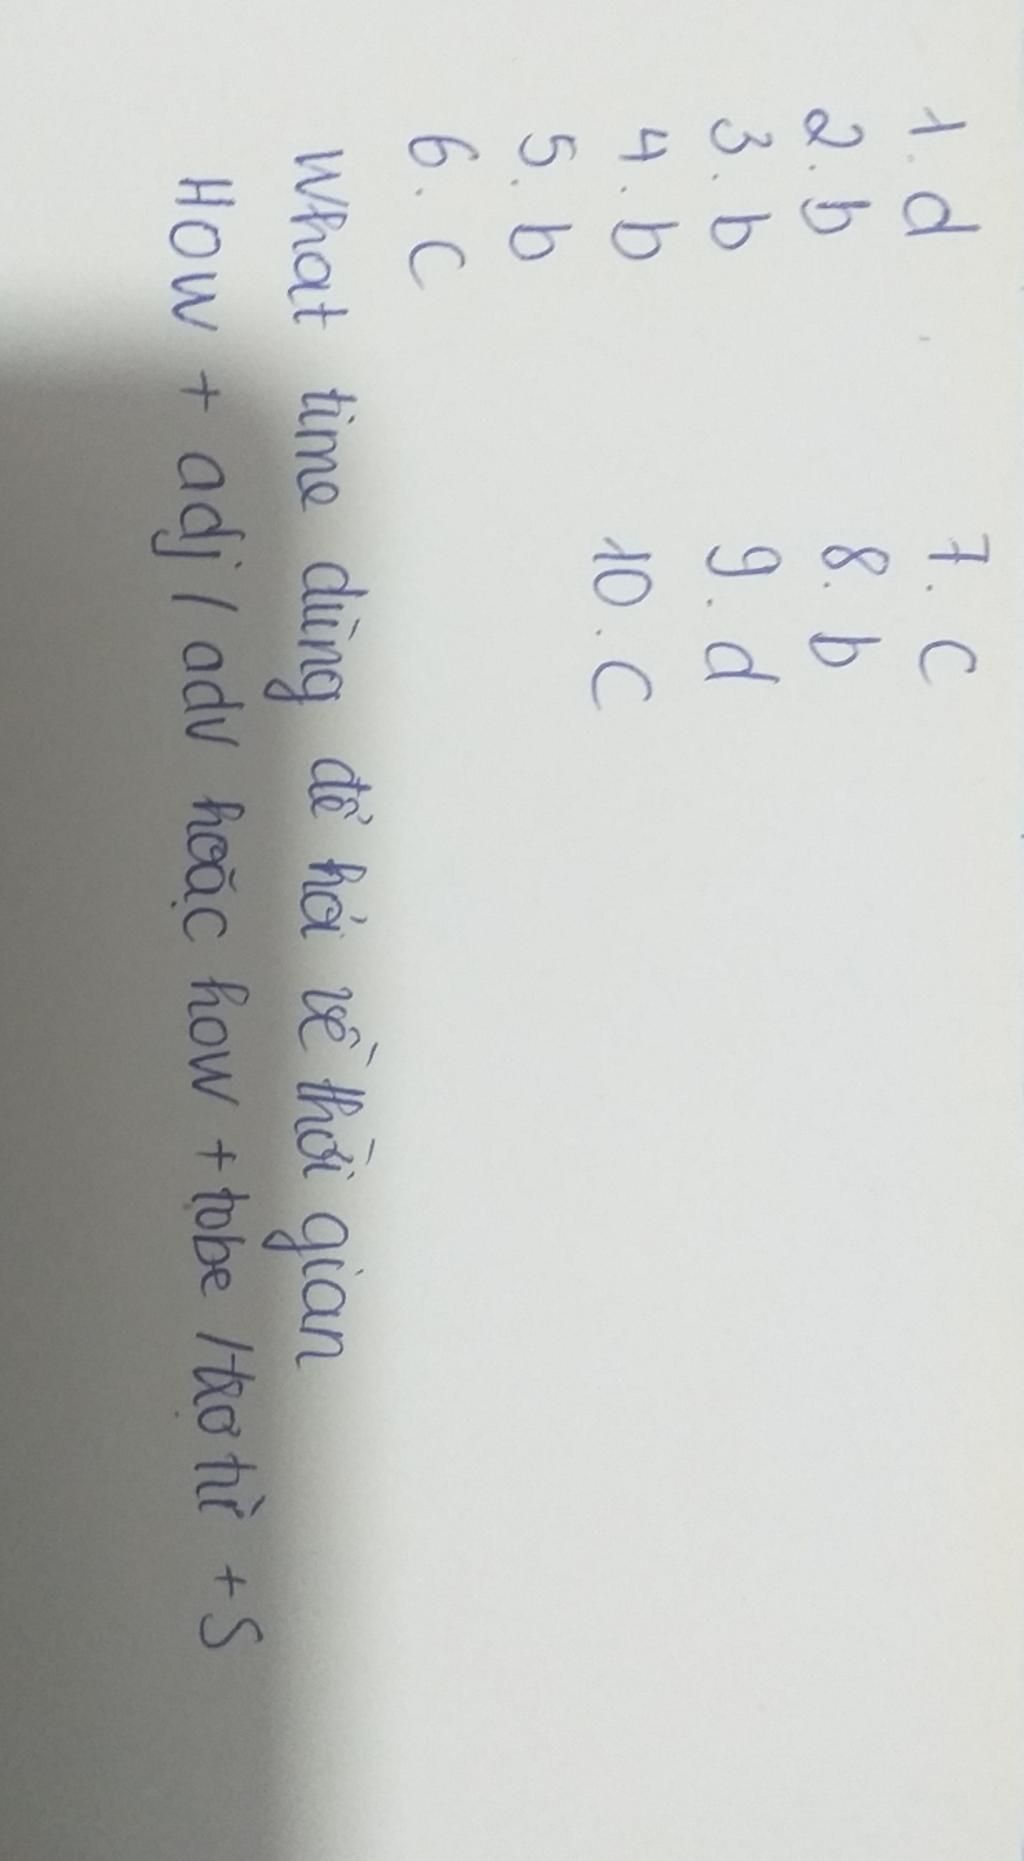 1. d
2. b
3. b
4. b
5. b
6. c
7. c
8. b
9. d
10. c
What time dùng để hỏi về thời gian
How + adj / adv hoặc how + tobe / trợ từ + S